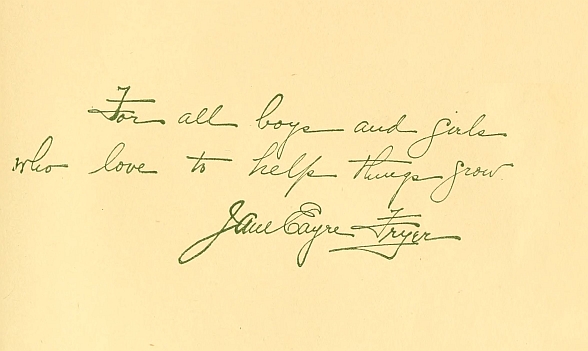 For all boys and girls
who love to help things grow.
Jane Eayre Fryer